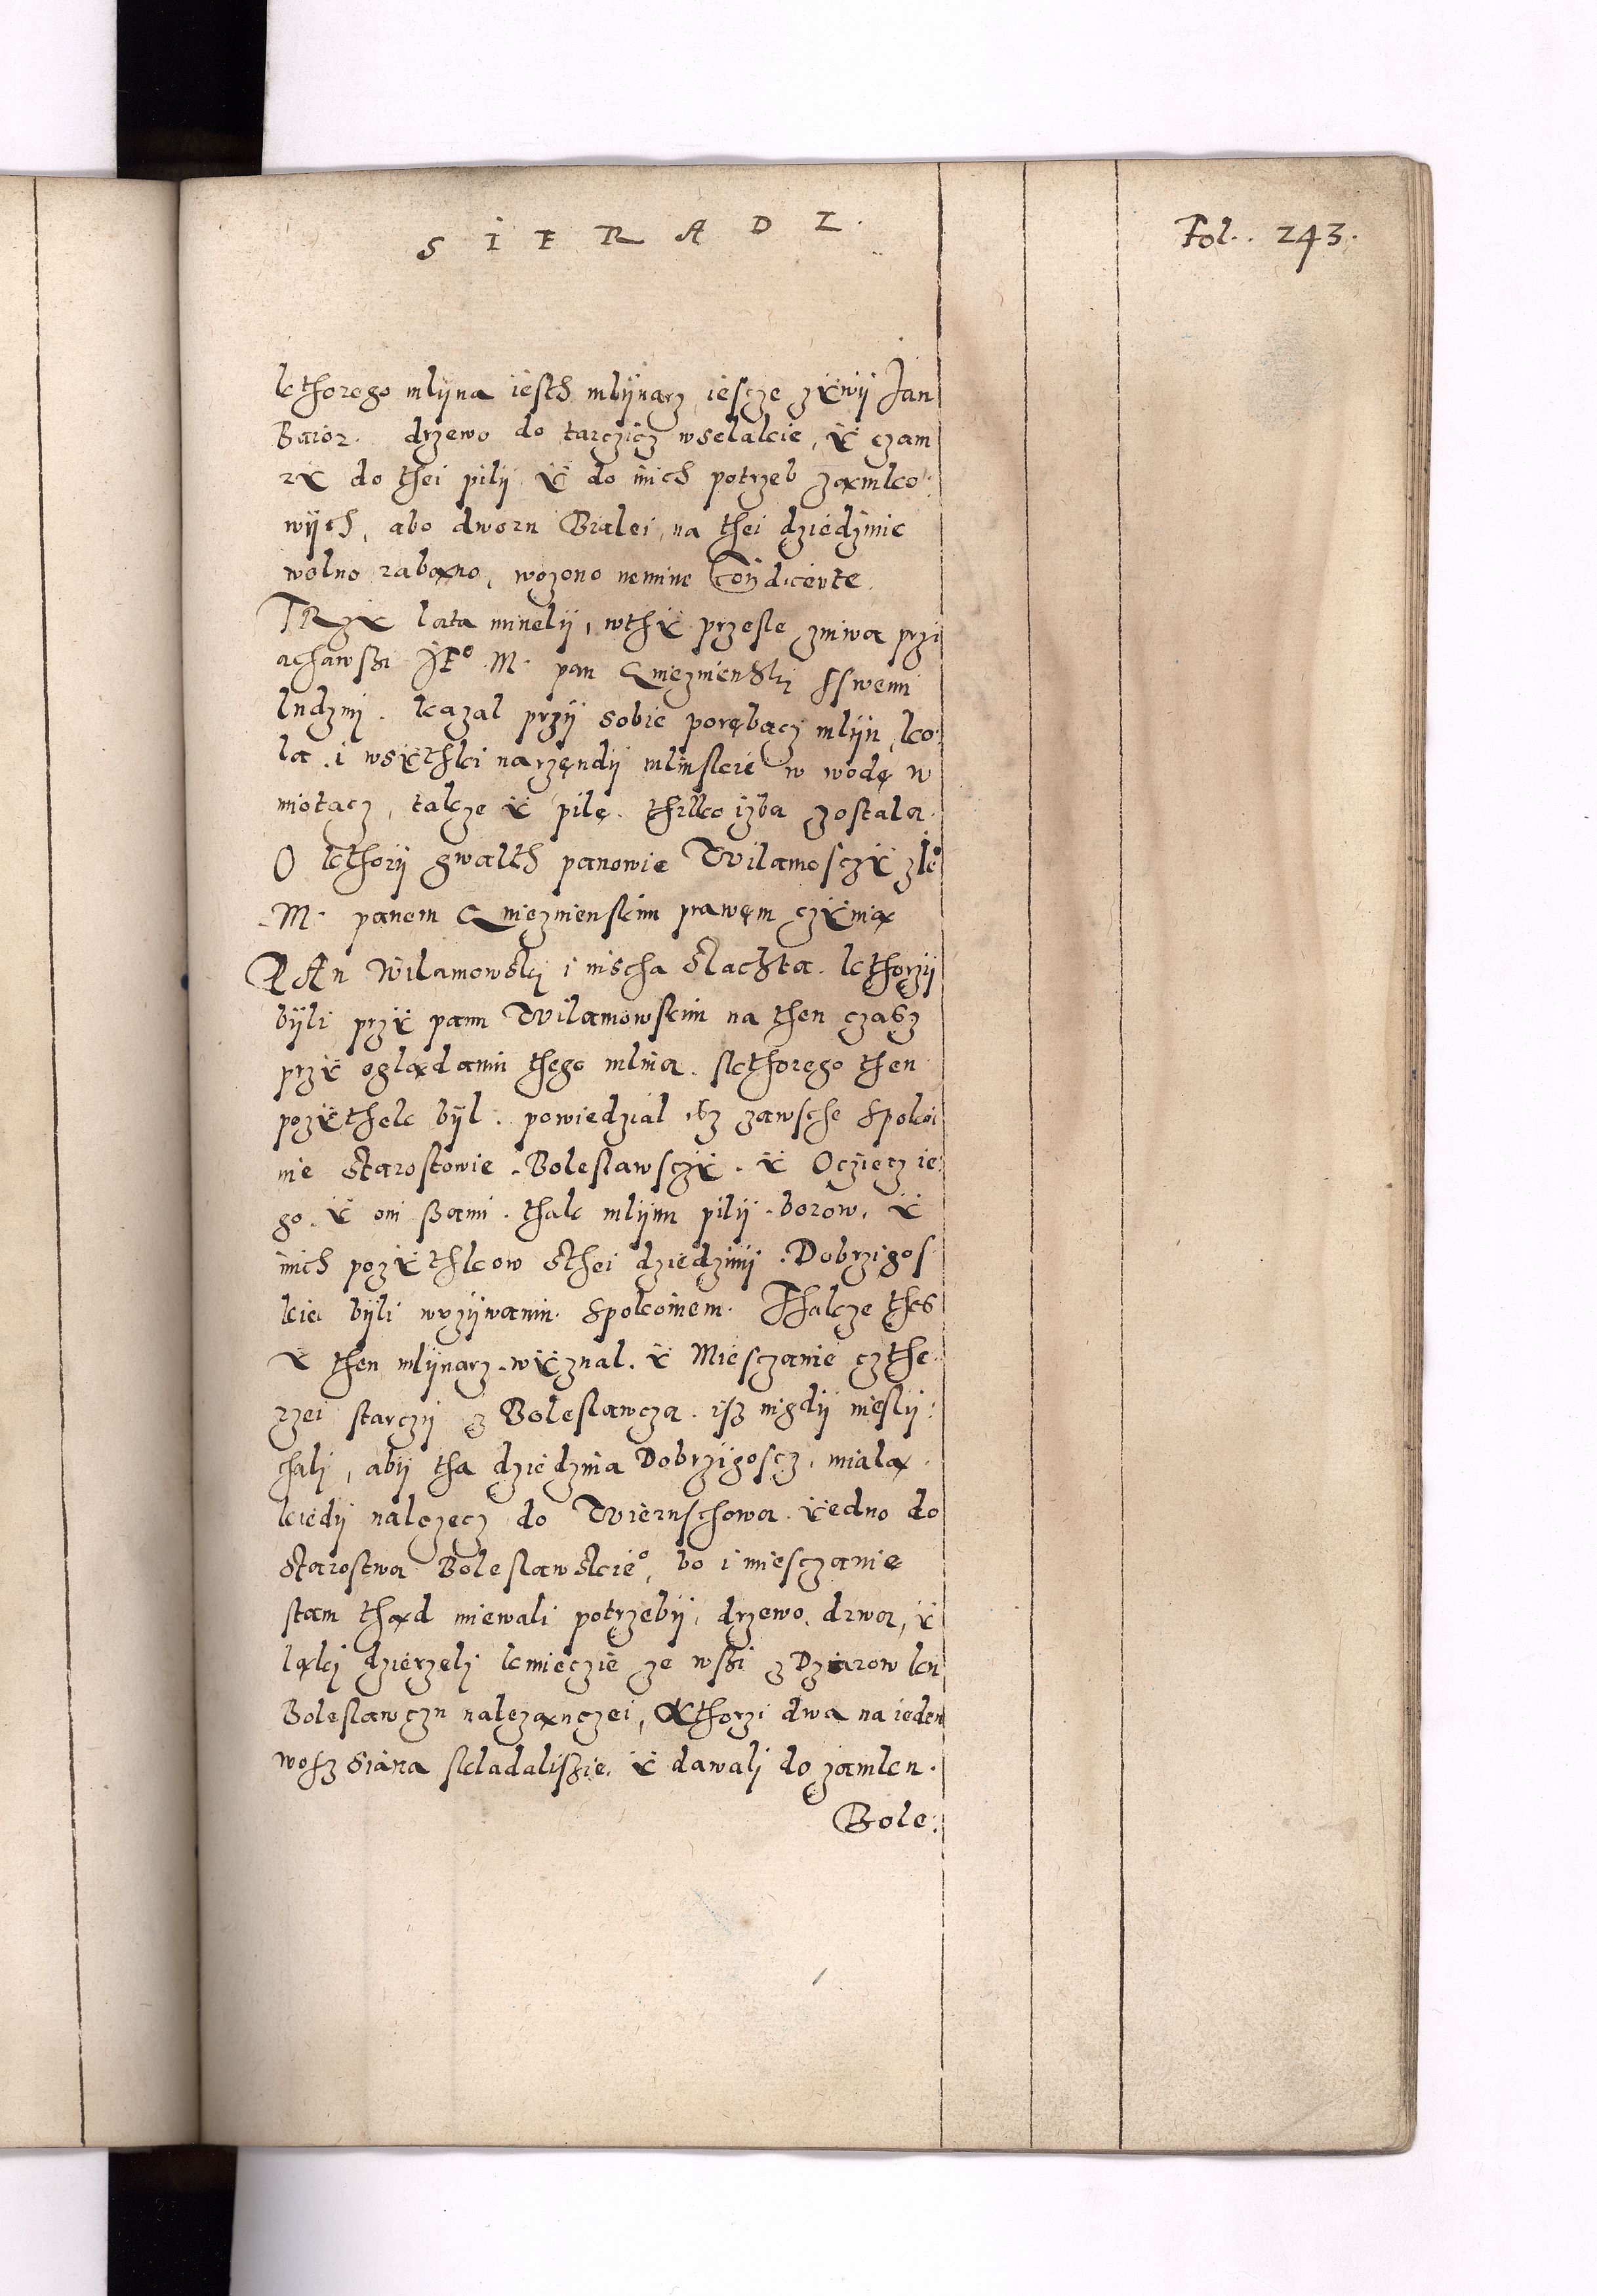 SIERADZ.
Fol. 243.
kthorego mlyna iesth mlynarz iescze zywy Jan
Baior. drzewo do tarczicz wselakie, y czam
ry do thei pily y do inich potrzeb zamko:
wych, abo dworu Bialei, na thei dziedzinie
wolno rabano, wozono nemine Contradicente.
TRzy lata minely, w thy przesle zniwa przi
achawssi JE° M. pan Gnieznienski sswemi
ludzmi. kazal przy sobie porębacz mlyn, ko:
la. i wsythki narzendy mlinskie w wodę w
miotacz, takze y pilę. thilko izba zostala.
O kthory gwalth panowie Wilamosczy z Je°
M. panem Gnieznienskim prawem czynia
PAn Wilamowski i inscha slachta. kthorzy
byli przy panu Wilamowskim na then czasz
przy oglądaniu thego mlina. skthorego then
pozythek byl. powiedzial isz zawsche spokoi
nie starostowie Boleslawsczy. y Ocziecz ie:
go. y oni ssami. thak mlynu pily borow, y
inich pozythkow sthei dziedziny Dobrzigos
kiei byli w vzywaniu spokoinem. Thakze thes
y then mlynarz wyznal. y Miesczanie czthe:
rzei starczy z Boleslawcza. isz nigdy niesly:
chali, aby tha dziedzina Dobrzigoscz, miala
kiedy nalezecz do Wieruschowa. yedno do
starostwa Boleslawskie°, bo i miesczanie
stam thąd miewali potrzeby, drzewo, drwa, y
ląki dzierzeli kmieczie ze wssi z Dziarow ku
Boleslawczu nalezanczei, kthorzi dwa na ieden
wosz siana skladalissie. y dawali do zamku.
Bole: